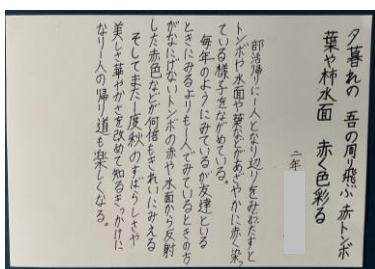 夕暮れの 吾の周り飛ぶ 赤トンボ
葉や柿水面 赤く色彩る
二年
部活帰りに一人となり辺りをみわたすと
トンボや水面や葉などがあざやかに赤く染っ
ている様子をながめている。
毎年のようにみているが友達といる
ときにみるよりも一人でみているときの方
がなにげないトンボの赤や水面から反射
した赤色などが何倍もきれいにみえる
そしてまた一度秋のすばらしさや
美しさ華やかさを改めて知るきっかけに
なり一人の帰り道も楽しくなる。